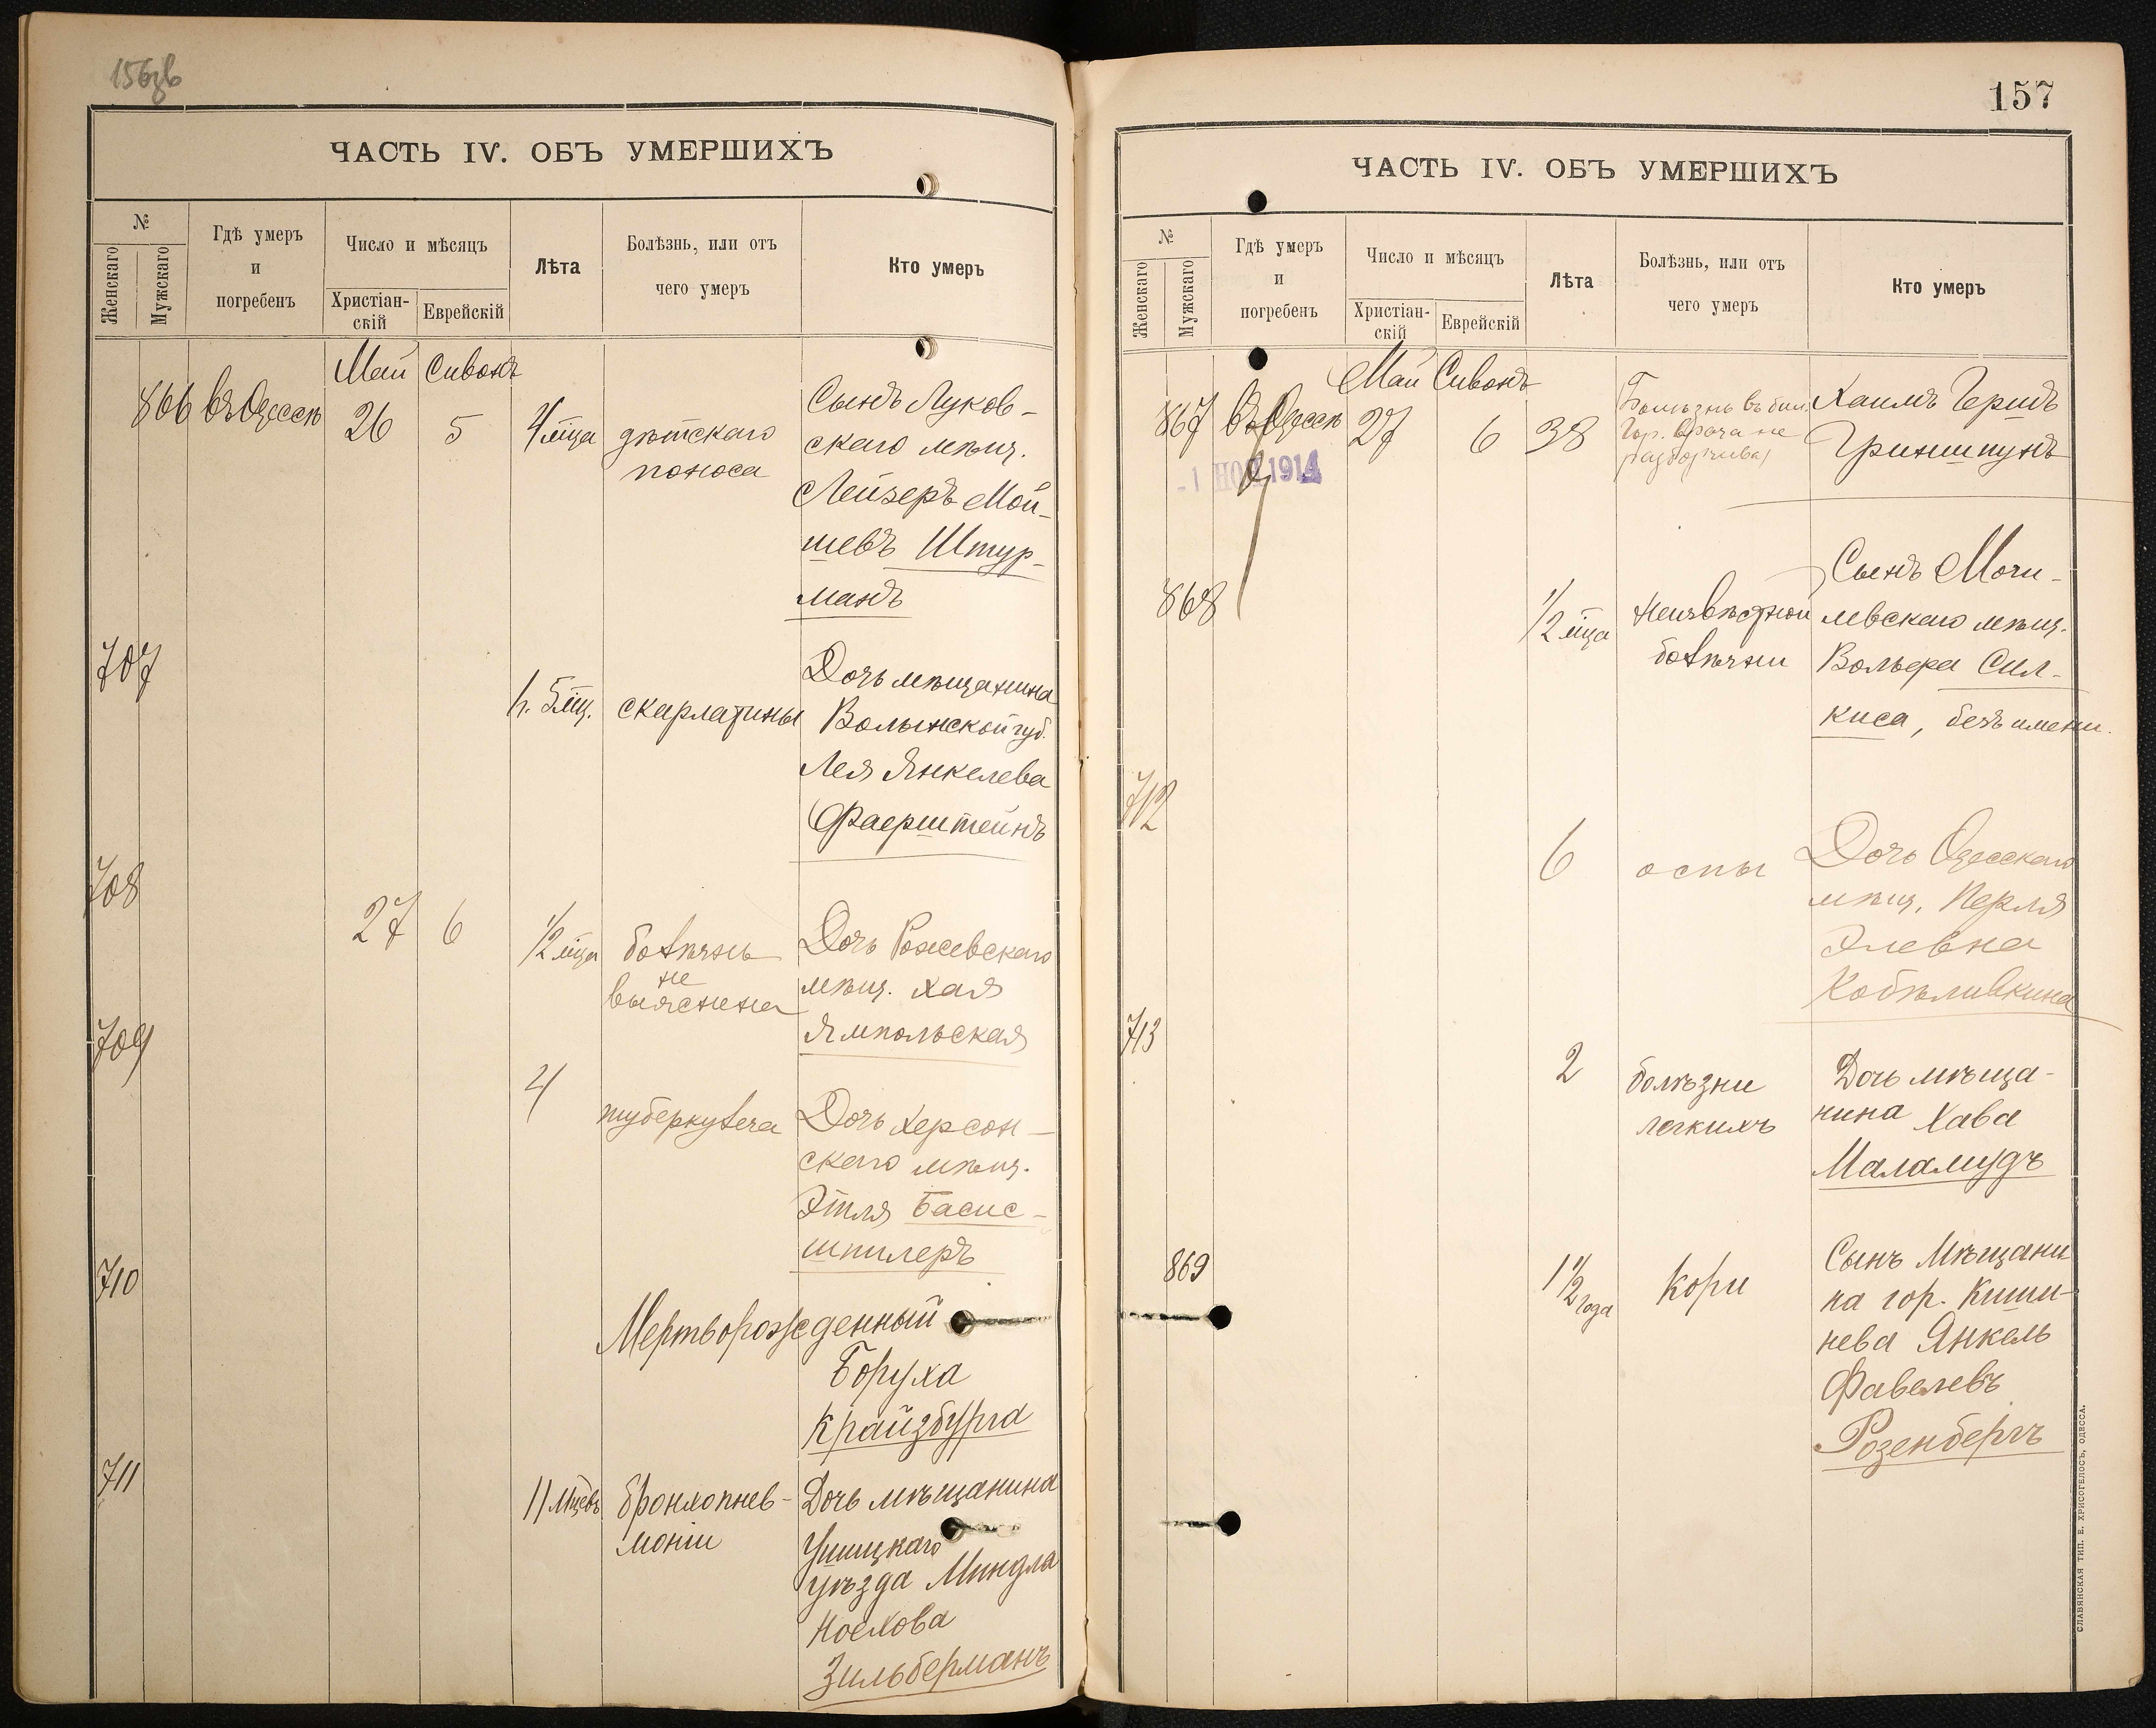 156об
ЧАСТЬ IV. ОБЪ УМЕРШИХЪ
№
Женскаго
Мужскаго
Гдѣ умеръ
и
погребенъ
Число и мѣсяцъ
Христіан-
скій
Еврейскій
Лѣта
Болѣзнь, или отъ
чего умеръ
Кто умеръ
Май Сивонъ
866 въ Одессѣ 26 5 4 мца дѣтскаго
поноса
Сынъ Луков-
скаго мѣщ.
Лейзеръ Мой-
шевъ Штур-
манъ
707
5 мц. скарлатины
Дочь мѣщанина
Волынской губ.
Лея Янкелева
Фаерштейнъ
708
27 6 1/2 мца болѣзнь
не
выяснена
Дочь Рожевскаго
мѣщ. Хая
Ямпольская
709
4 туберкулеза
Дочь Херсон-
скаго мѣщ.
Этля Басис-
шпилеръ
710
Мертворожденный
Боруха
Крайзбурга
711
11 мцевъ бронхопнев-
моніи
Дочь мѣщанина
Ушицкаго
уѣзда Миндля
Носхова
Зильберманъ
157
ЧАСТЬ IV. ОБЪ УМЕРШИХЪ
№
Женскаго
Мужскаго
Гдѣ умеръ
и
погребенъ
Число и мѣсяцъ
Христіан-
скій
Еврейскій
Лѣта
Болѣзнь, или отъ
чего умеръ
Кто умеръ
Май Сивонъ
867 въ Одессѣ 27 6 38
Болѣзнь въ бил.
Гор. врача не
разборчива
Хаимъ Гершъ
Гриншпунъ
-1 НОЯ 1914
868
1/2 мца Неизвѣстной
болѣзни
Сынъ Моги-
левскаго мѣщ.
Вольфа Сил-
киса, безъ имени.
712
6 оспы
Дочь Одесскаго
мѣщ. Перля
Элевна
Кобѣливкина
713
2 болѣзни
легкихъ
Дочь мѣща-
нина Хава
Маламудъ
869
1 1/2 года Кори
Сынъ Мѣщани
на гор. Киши-
нева Янкель
Фавелевъ
Розенбергъ
СЛАВЯНСКАЯ ТИП. Е. ХРИСОГЕЛОСЪ, ОДЕССА.